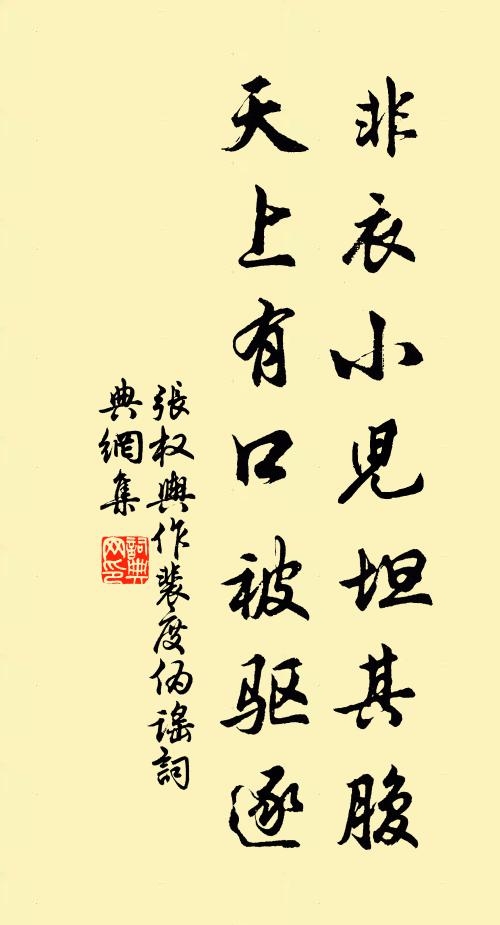 非衣小児坦其腹
天上有口被驱逐
張权輿作裴度伪謠詞
典網集
詞典网印